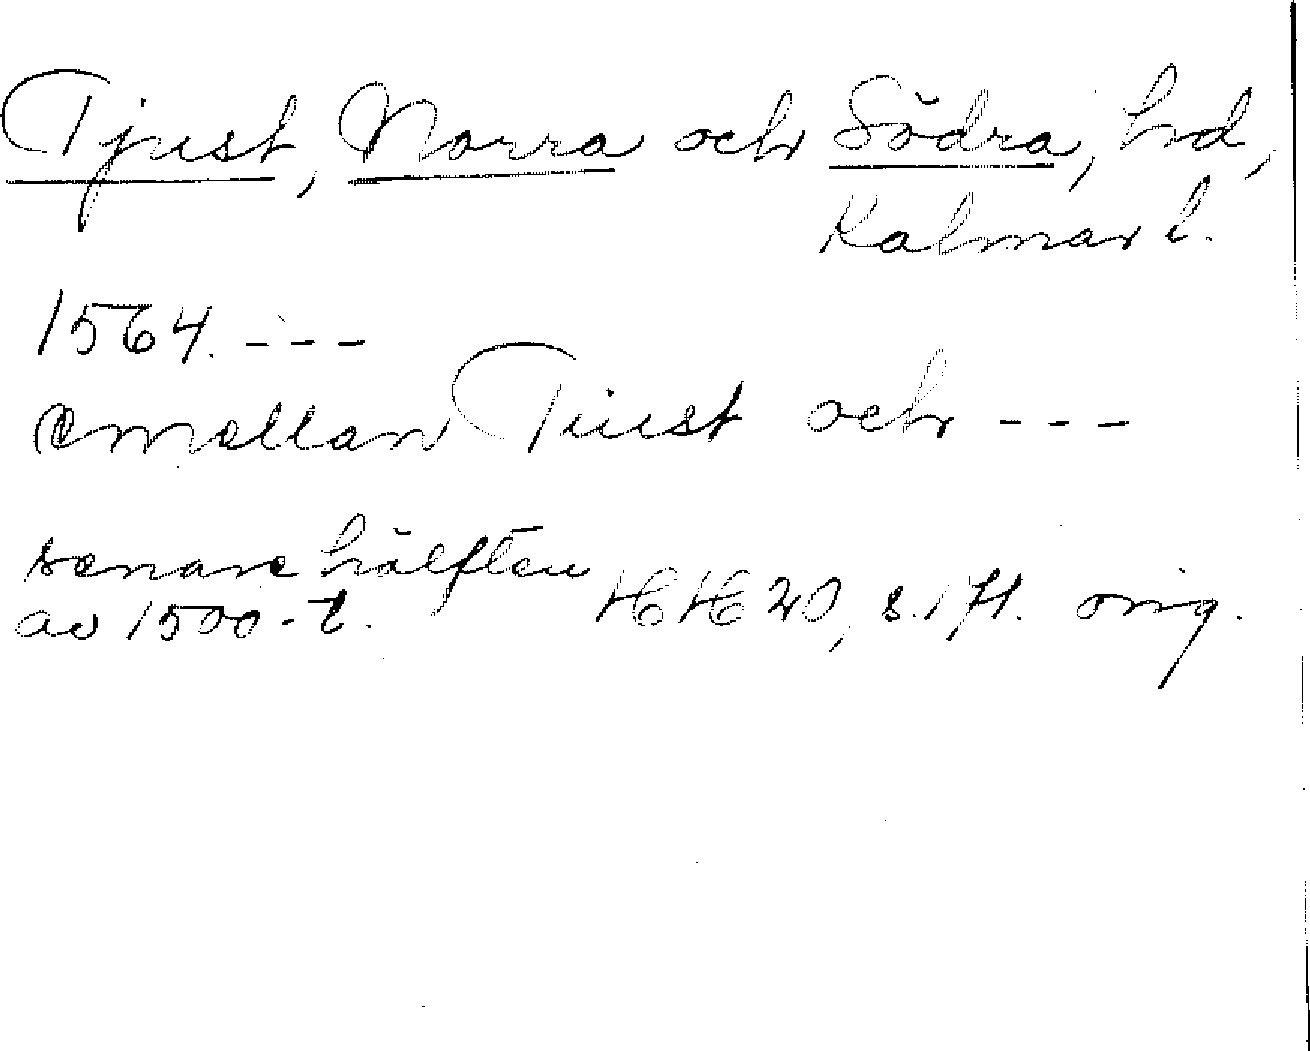 Tjust, Norra och Södra, hd,
Kalmar l.
1564. ---
emellan Tiust och ---
senare hälften
av 1500-t. HH 20, s. 171. orig.